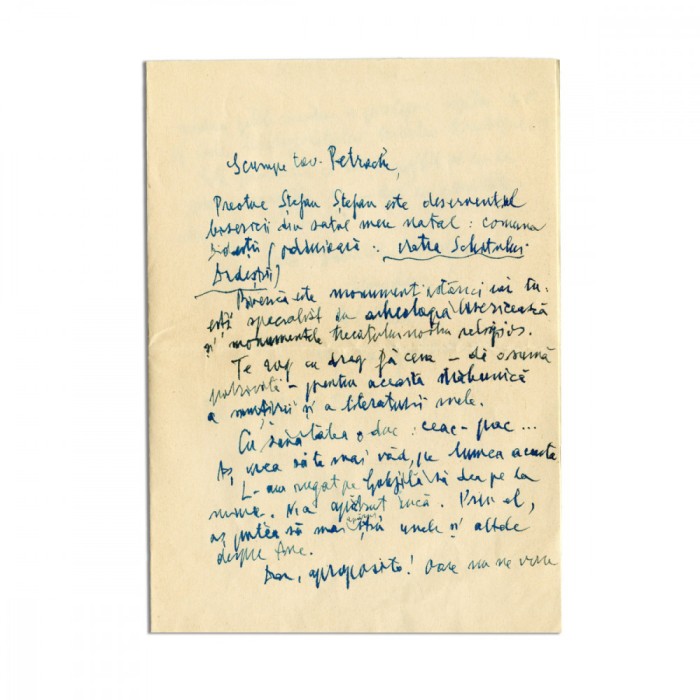 Scumpe tov. Petrache,
Preotul Ștefan Ștefan este deserventul
bisericii din satul meu natal: comuna
(odinioară: Vatra Schitului
Biserica este monument istoric iar tu
ești specialist în arheologia bisericească
și monumentele trecutului nostru religios.
Te rog cu drag fă ceva – dă o sumă
potrivită – pentru această străbunică
a nunții și a literaturii mele.
Cu sănătatea o duc: ceac-pac...
Aș vrea să te mai văd, pe lumea aceasta
L-am rugat pe să dea pe la
mine. N-a apărut încă. Prin el,
aș putea să mai știu unele și altele
despre tine.
Dar, aproposito! Oare nu ne vom